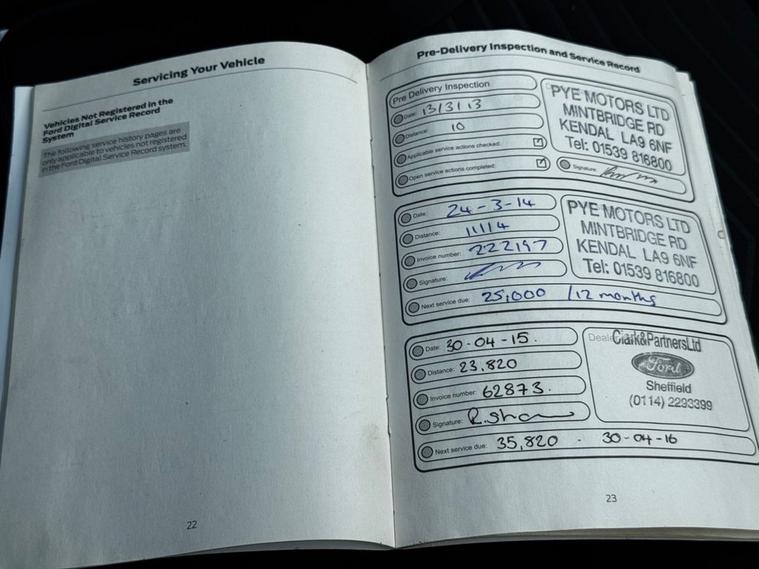 Servicing Your Vehicle
Vehicles Not Registered in the
Ford Digital Service Record
System
The following service history pages are
only applicable to vehicles not registered
in the Ford Digital Service Record system.
22
Pre-Delivery Inspection and Service Record
Pre Delivery Inspection
Date: 13/3/13
Distance: 10
Applicable service actions checked:
Open service actions completed:
PYE MOTORS LTD
MINTBRIDGE RD
KENDAL LA9 6NF
Tel: 01539 816800
Signature:
Date: 24-3-14
Distance: 11114
Invoice number: 222197
Signature:
Next service due: 25,000 /12 months
PYE MOTORS LTD
MINTBRIDGE RD
KENDAL LA9 6NF
Tel: 01539 816800
Date: 30-04-15.
Distance: 23,820
Invoice number: 62873.
Signature:
Next service due: 35,820 - 30-04-16
Clark&PartnersLtd
Ford
Sheffield
(0114) 2293399
23